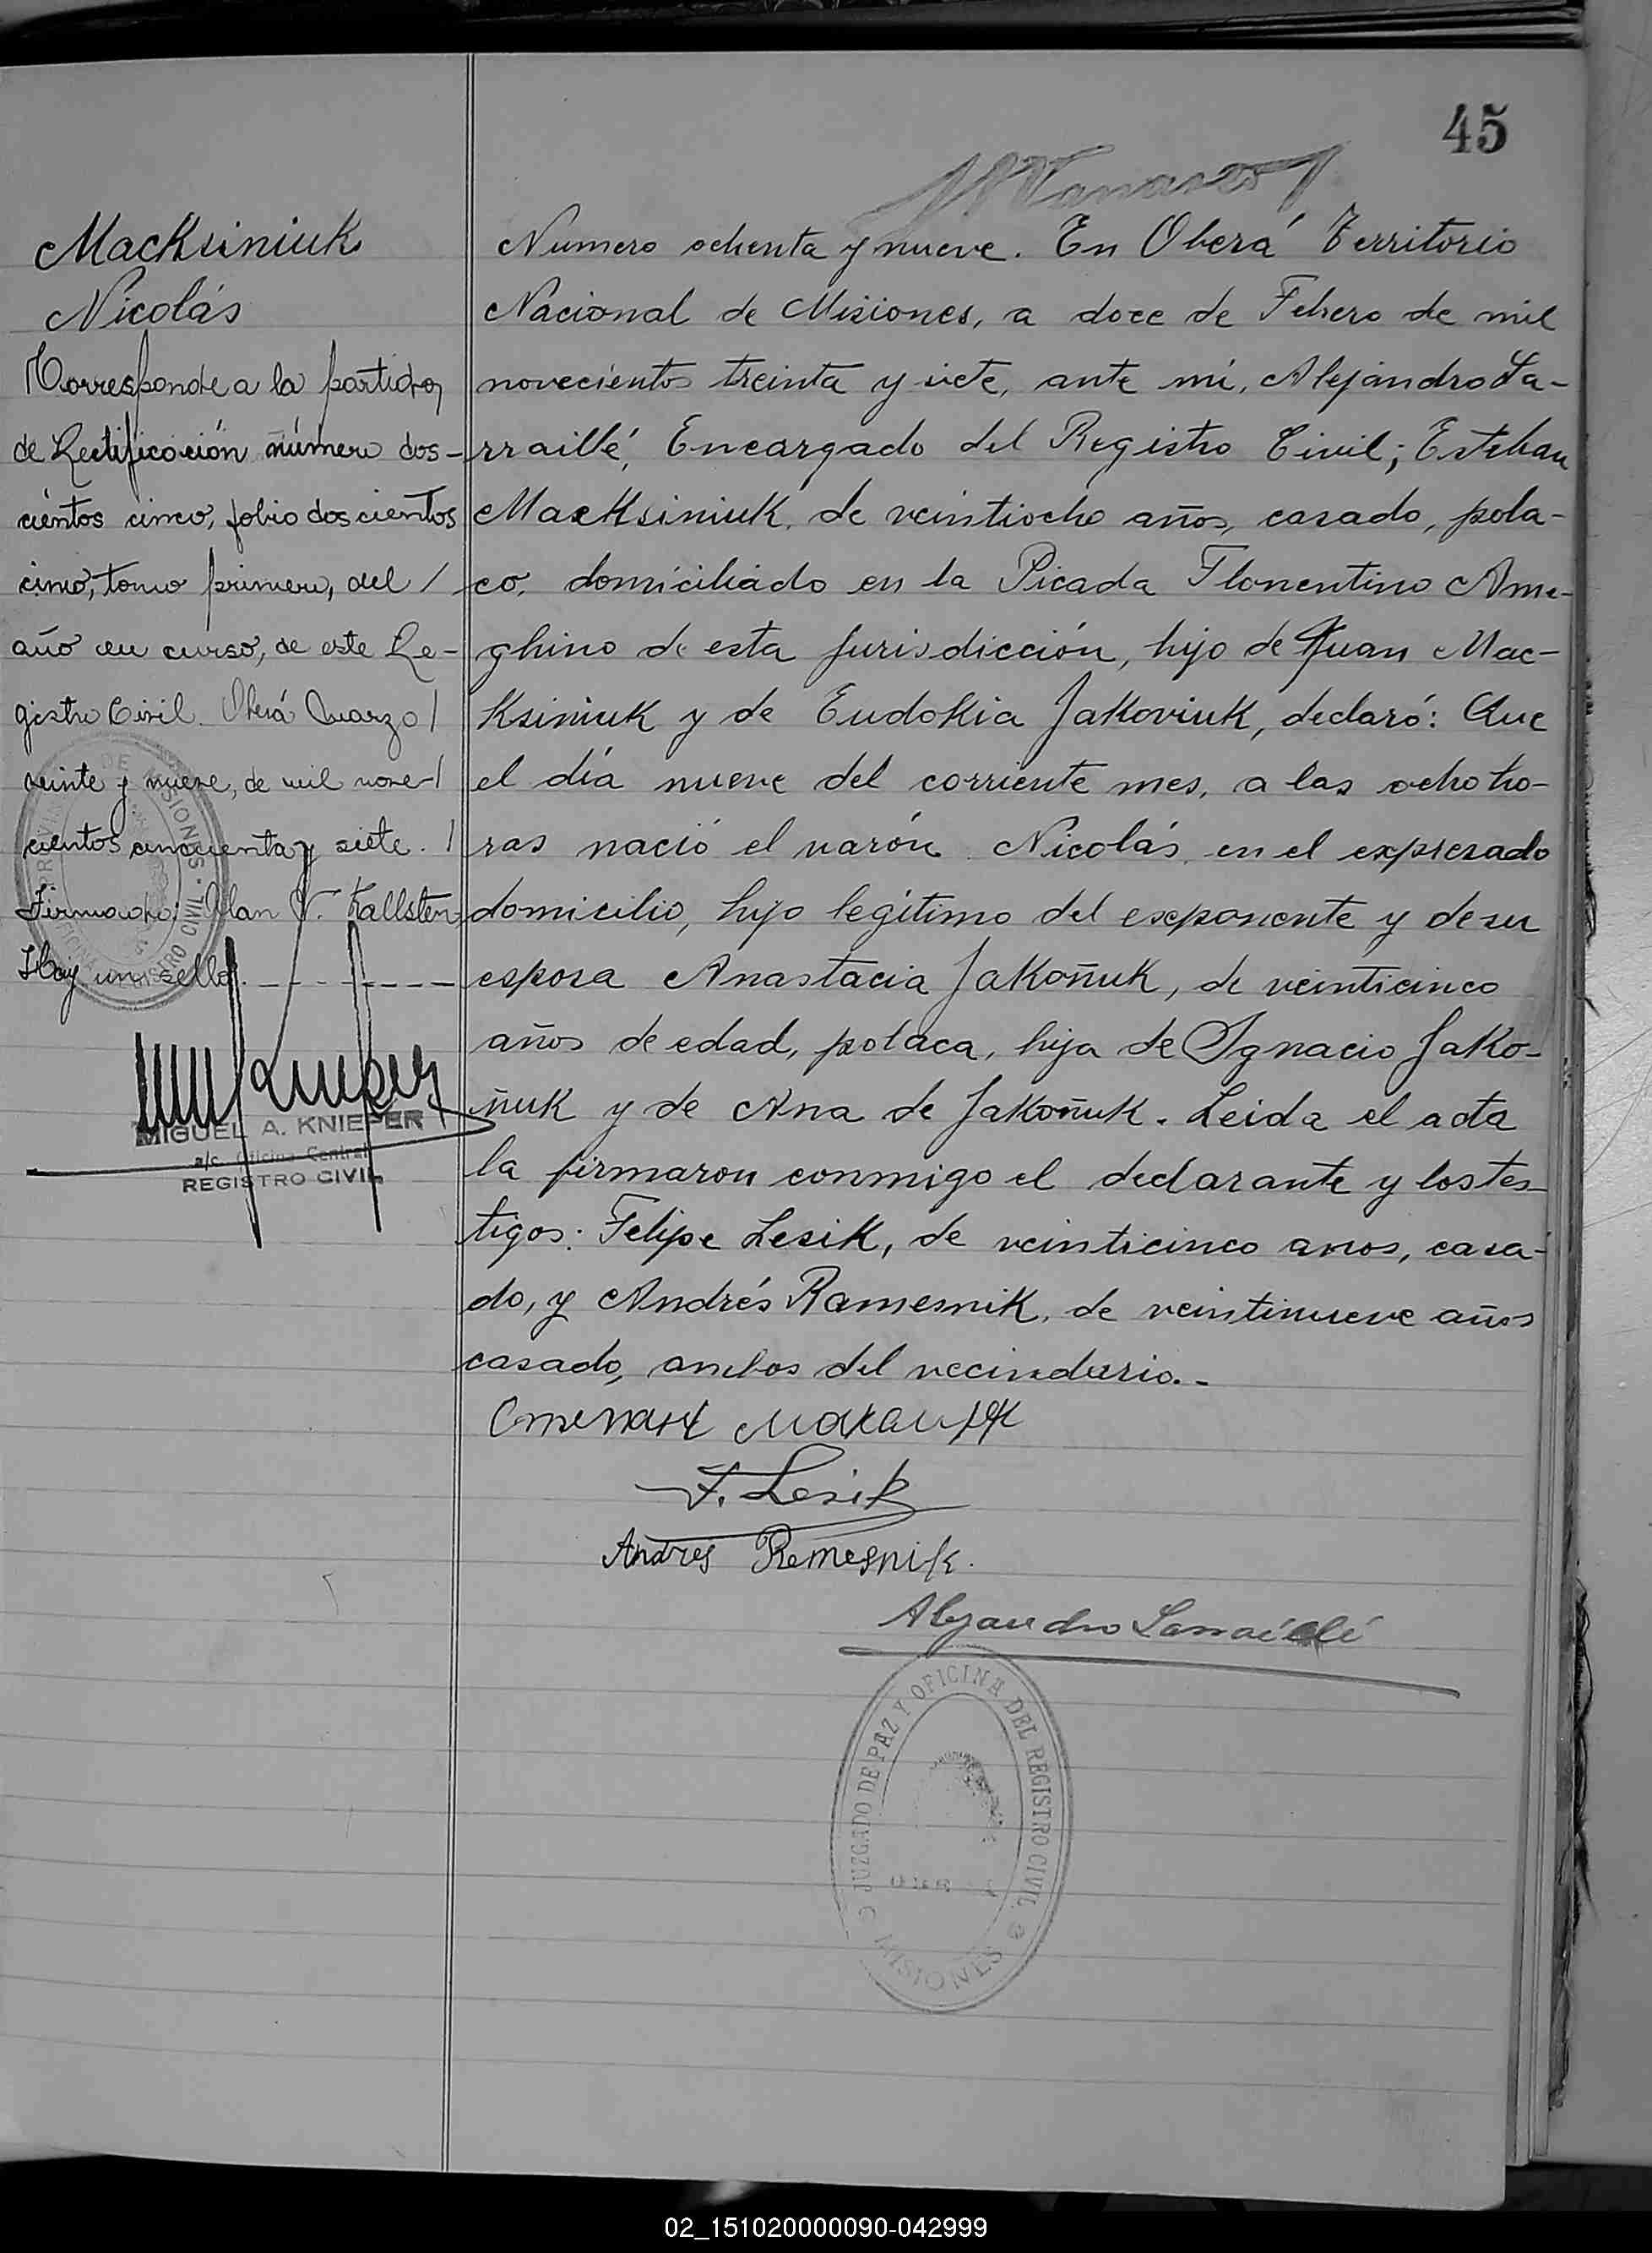 45
Macksiniuk
Nicolás
Corresponde a la partida,
de Rectificación número dos-
cientos cinco, folio doscientos
cinco, tomo primero, del /
año en curso, de este Re-
gistro Civil. Oberá Marzo /
veinte y nueve, de mil nove-/
cientos cincuenta y siete. /
Firmado: Alan V. Kallsten,
Hay un sello.
MIGUEL A. KNIEPER
a/c. Oficina Central
REGISTRO CIVIL
Numero ochenta y nueve. En Oberá Territorio
Nacional de Misiones, a doce de Febrero de mil
novecientos treinta y siete, ante mí, Alejandro La-
rraillé, Encargado del Registro Civil; Esteban
Macksiniuk, de veintiocho años, casado, pola-
co, domiciliado en la Picada Florentino Ame-
ghino de esta jurisdicción, hijo de Juan Mac-
Ksiniuk y de Eudokia Jakoviuk, declaró: Que
el día nueve del corriente mes, a las ocho ho-
ras nació el varón Nicolás, en el expresado
domicilio, hijo legítimo del exponente y de su
esposa Anastacia Jakoñuk, de veinticinco
años de edad, polaca, hija de Ignacio Jako-
ñuk y de Ana de Jakoñuk. Leida el acta
la firmaron conmigo el declarante y los tes-
tigos: Felipe Lesik, de veinticinco anos, casa-
do, y Andrés Ramesnik, de veintinueve años
casado, ambos del vecindario.-
F. Lesik
Andres Remesnik.
Alejandro Larraillé
JUZGADO DE PAZ Y OFICINA DEL REGISTRO CIVIL
MISIONES
02_151020000090-042999